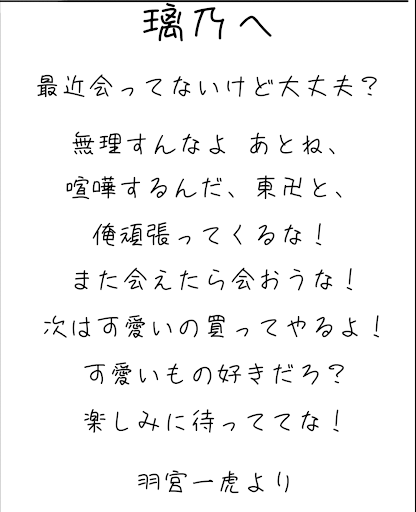 璃乃へ
最近会ってないけど大丈夫？
無理すんなよ あとね、
喧嘩するんだ、東卍と、
俺頑張ってくるな！
また会えたら会おうな！
次は可愛いの買ってやるよ！
可愛いもの好きだろ？
楽しみに待っててな！
羽宮一虎より